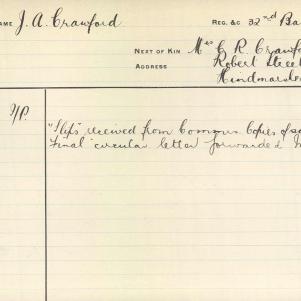 NAME J. A. Crawford REG. &c 32nd Ba
NEXT OF KIN Mrs C. R. Crawfo
ADDRESS Robert Street
Hindmarsh
"Slips" received from Commrs Copies of
"Final" circular letter forwarded